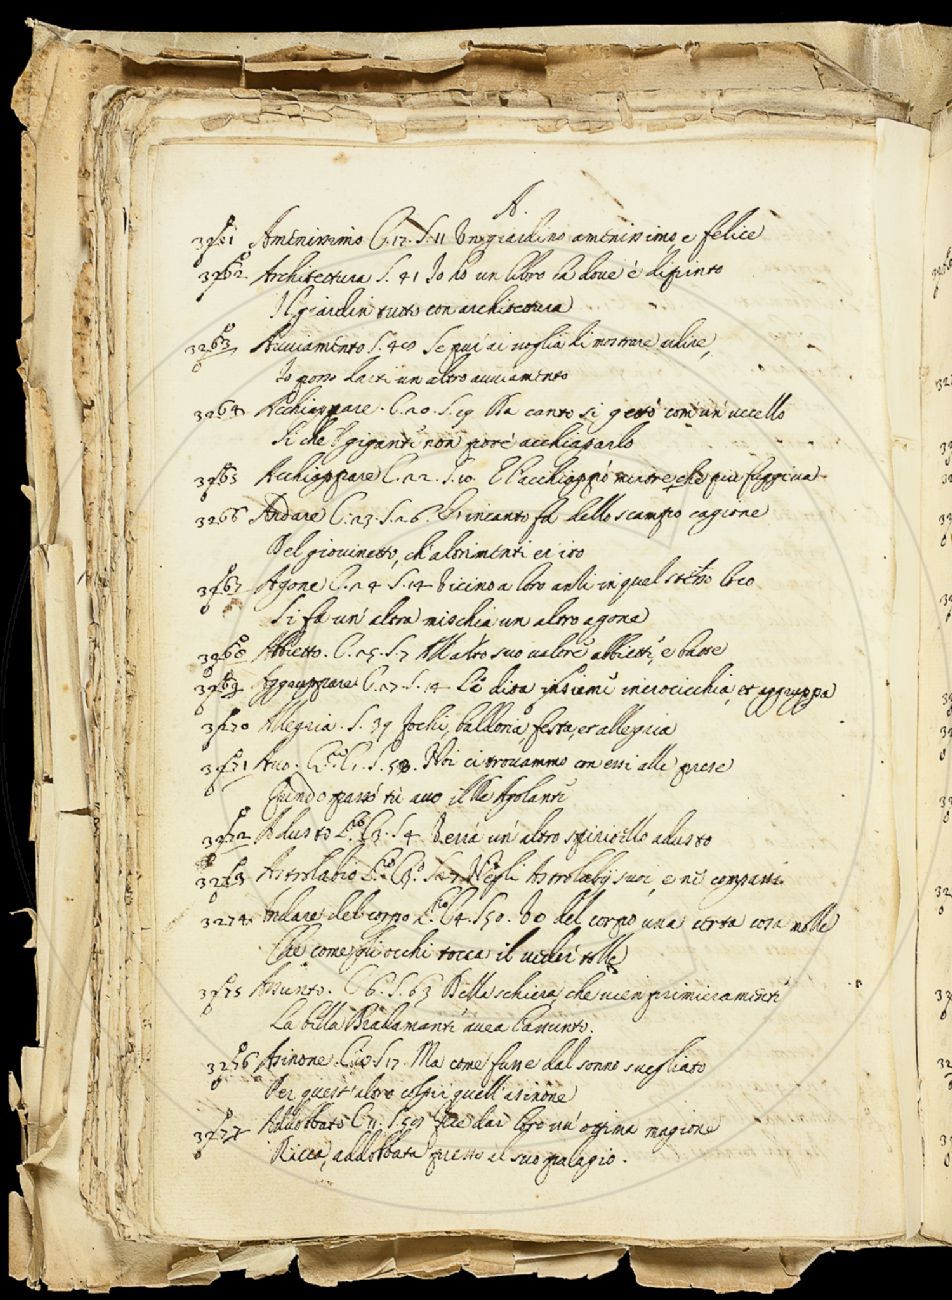 A.
3261 Amenissimo C. 12. S. 11 Un giardino amenissimo, e felice
3262 Architettura S. 41 Io ho un libro la dove è dipinto
Il giardin tutto con architettura
3263 Avviamento S. 48 Se pur ai voglia di mostrare ardire,
Io posso darti un altro avviamento
3264 Acchiappare. C. 20. S. 19 Da canto si gettò com un' uccello
Si che giganti non poté acchiaparlo
3265 Acchiappare C. 22. S. 10. E l'acchiappò mentre che più fuggiva
3266 Andare C. 23. S. 26. incanto fu dello scampo cagione
Del giovinetto, ch'altrimenti er ito
3267 Agone C. 24 S. 14 Vicino a loro anli in quel stesso loco
Si fa un' altra mischia un altro agone
3268 Abbietto. C. 25. S. 7 suo valore abbietti, e basse
3269 Aggruppare C. 27. S. 14 Le dita insieme incrocicchia, et aggruppa
3270 Allegria. S. 39 fochi, baldoria festa, et allegria
3271 Avo. S. 58. Noi ci trovammo con essi alle prese
Quando passò tu avo il Re Agolante
3272 Adusto C. 3. S. 4 Verrà un' altro spiritello adusto
3273 Astrolabio Negli Astrolabij suoi, e ne' compassi
3274 Andare del corpo C. 4. S. 50. Va del corpo una certa cosa molle
Che come gli occhi tocca il veder tolle
3275 Assunto. C. 6. S. 63 Della schiera che vien primieramente
La bella Bradamante avea l'assunto.
3276 Asinone. S. 17. Ma come fusse dal sonno svegliato
Per quest' altro colpir quell' asinone
3277 Addobbato C. 11. S. 58 fece dar loro un' ottima magione
Ricca, addobbata presso il suo palagio.